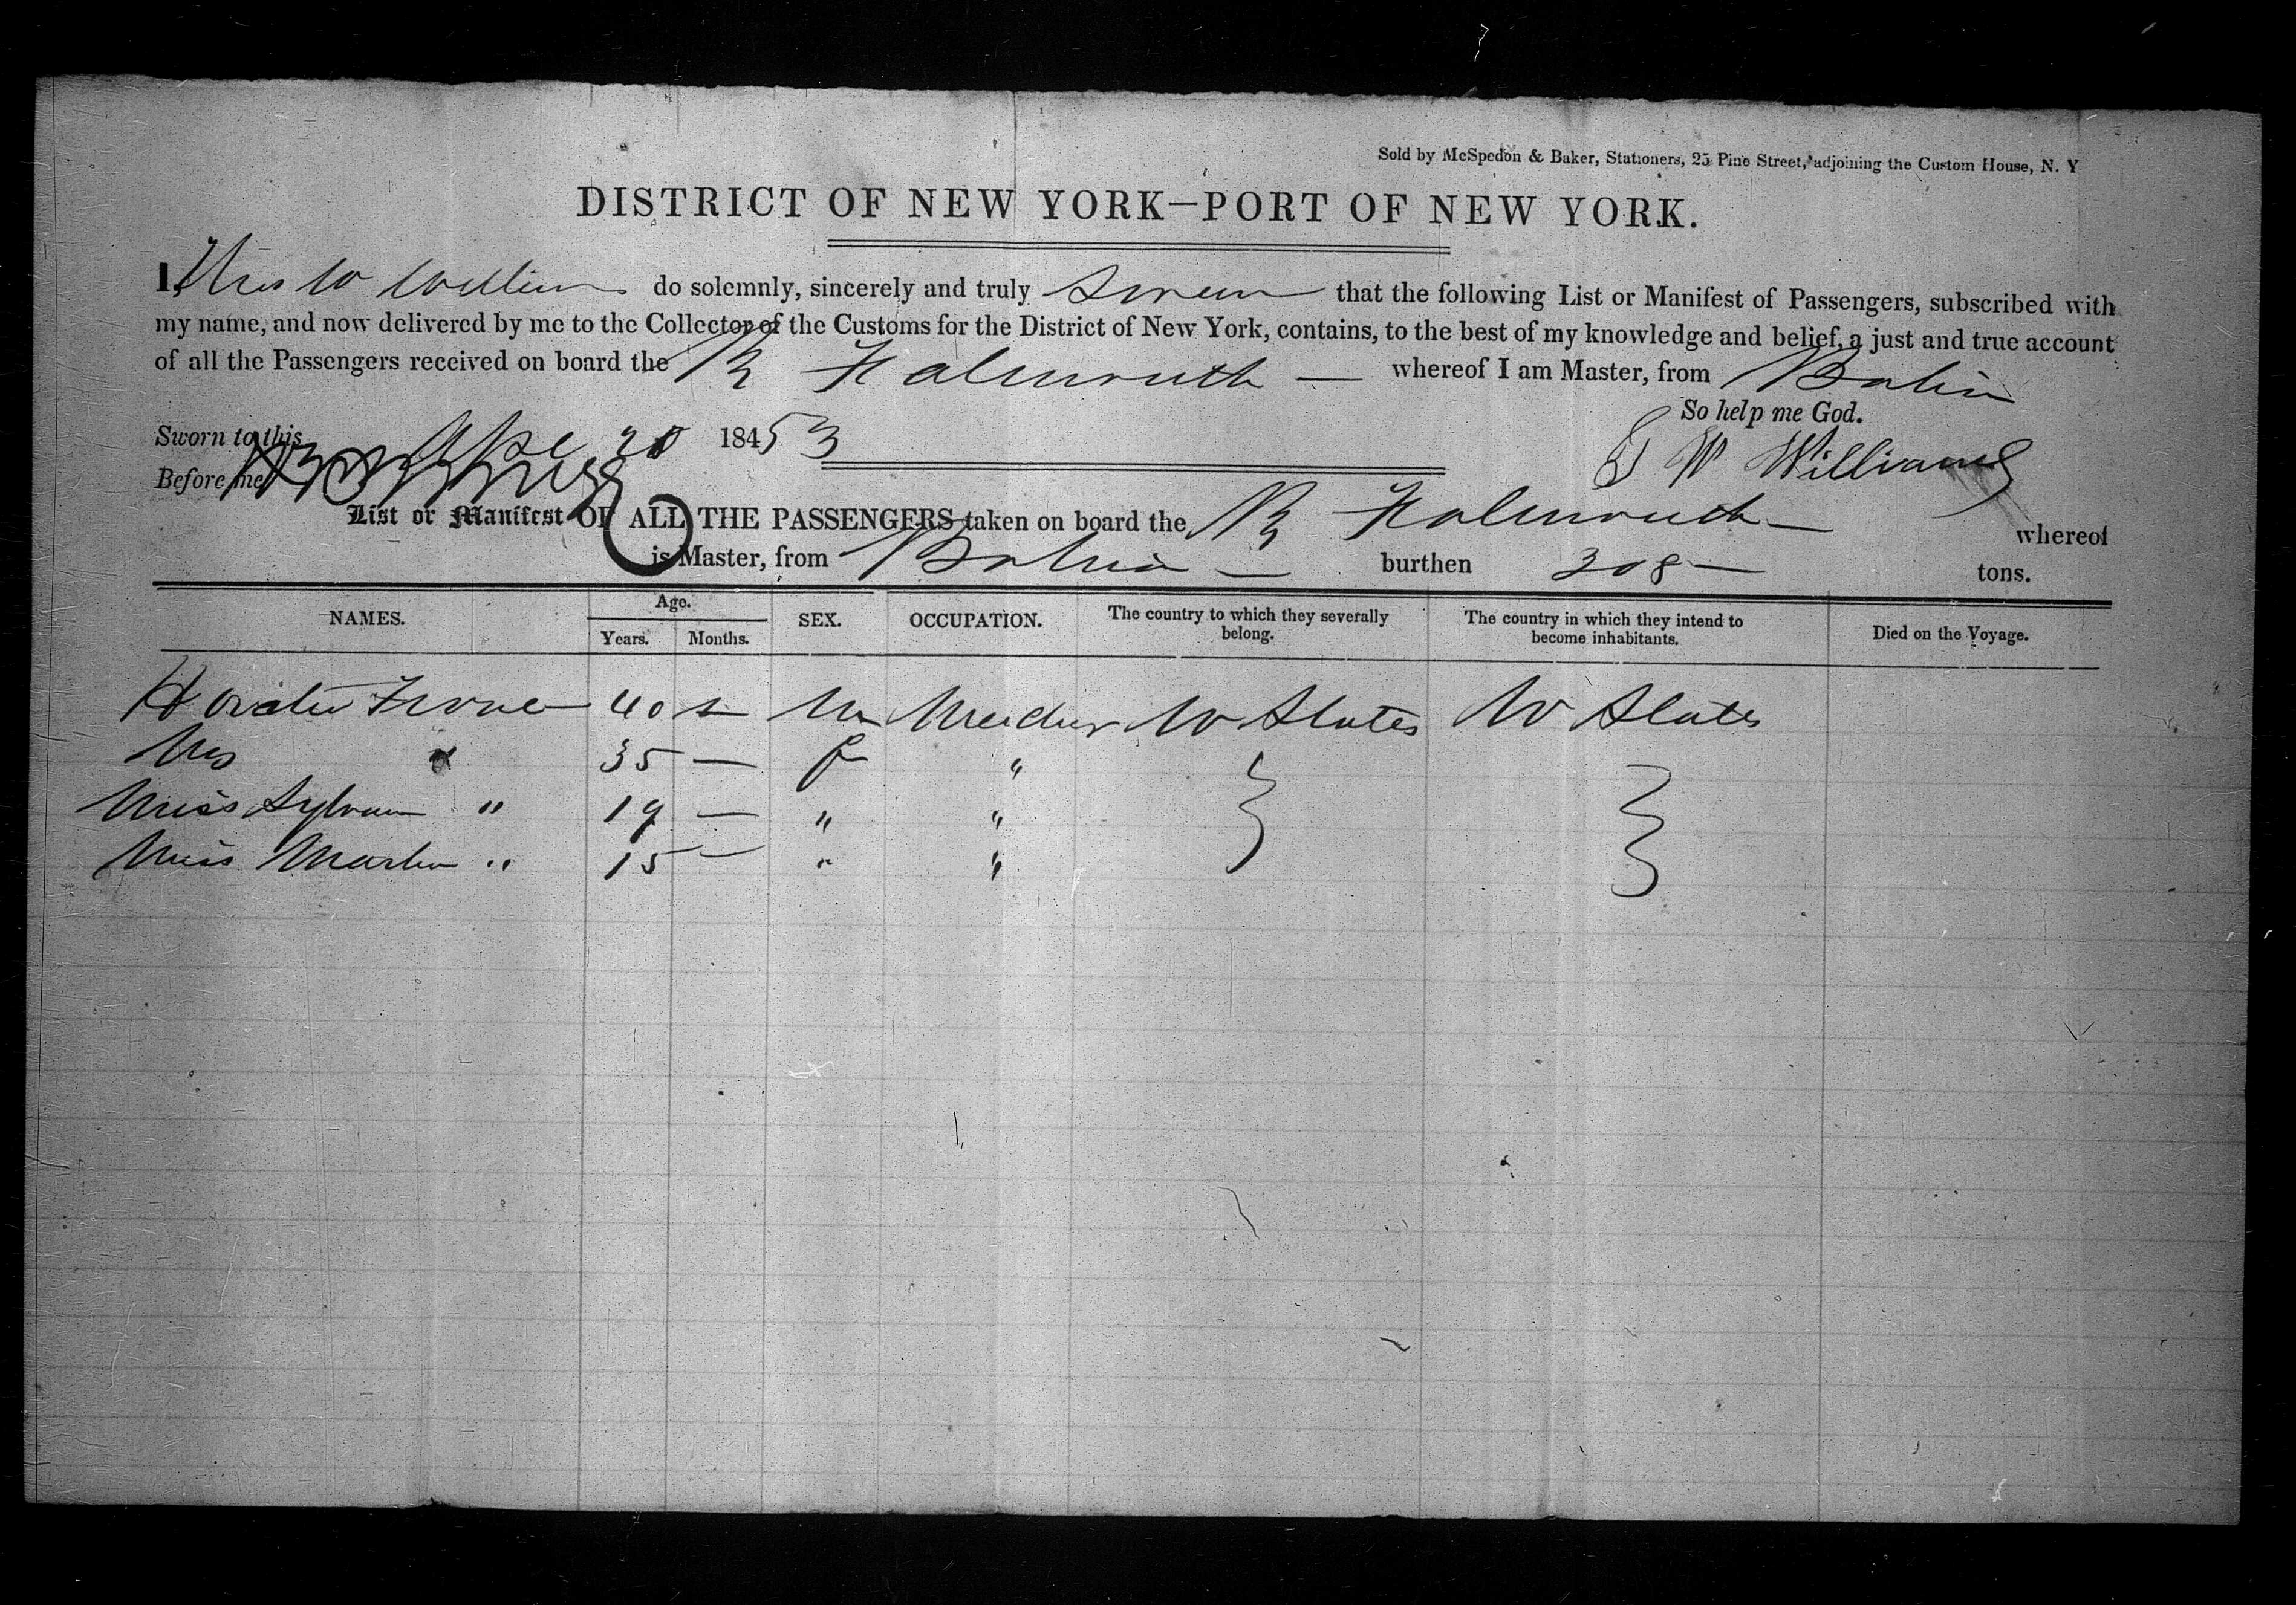 Sold by McSpedon & Baker, Stationers, 25 Pine Street, adjoining the Custom House, N. Y
DISTRICT OF NEW YORK—PORT OF NEW YORK.
I, W do solemnly, sincerely and truly swear that the following List or Manifest of Passengers, subscribed with
my name, and now delivered by me to the Collector of the Customs for the District of New York, contains, to the best of my knowledge and belief, a just and true account
of all the Passengers received on board the Falmouth — whereof I am Master, from Bahia
So help me God.
Sworn to this 20 18453
W Williams
Before me
List or Manifest OF ALL THE PASSENGERS taken on board the Falmouth — whereof
is Master, from Bahia — burthen 308 — tons.
NAMES. Age. Years. Months. SEX. OCCUPATION. The country to which they severally belong. The country in which they intend to become inhabitants. Died on the Voyage.
40 M U States U States
Mrs " 35 — F "
Miss " 19 — " "
Miss " 15 — " "